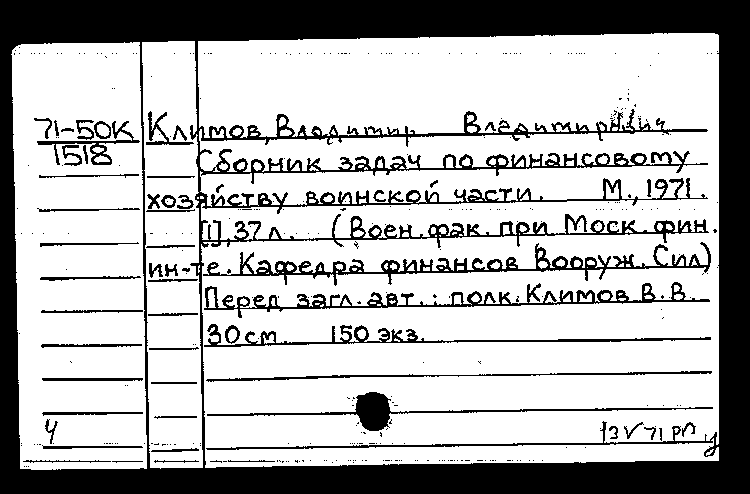 71-50К Климов, Владимир Владимирович
1518 Сборник задач по финансовому
хозяйству воинской части. М., 1971.
[I], 37 л. (Воен. фак. при Моск. фин.
ин-те. Кафедра финансов Вооруж. Сил)
Перед загл. авт.: полк. Климов В. В.
30 см 150 экз.
Ч 13 V 71 РП